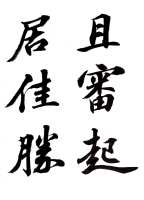 且審起
居佳勝